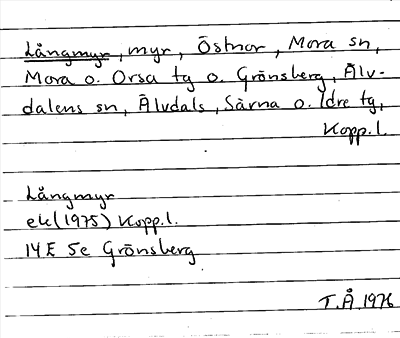 Långmyr, myr, Östnor, Mora sn,
Mora o. Orsa tg o. Grönsberg, Älv-
dalens sn, Älvdals, Särna o. Idre tg,
Kopp.l.
Långmyr
ek (1975) Kopp.l.
14E 5e Grönsberg
T.Å. 1976